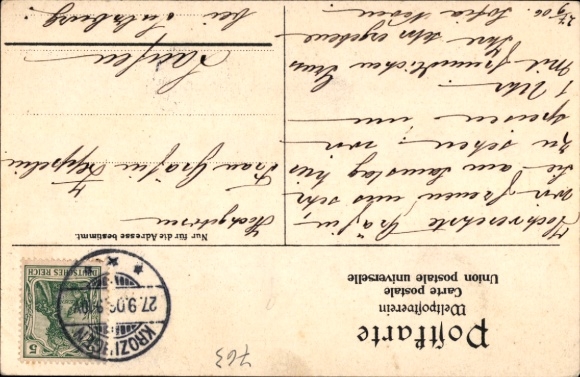 Postkarte
Weltpostverein
Carte postale
Union postale universelle
DEUTSCHES REICH
5
KROZINGEN
27.9.06
763
Nur für die Adresse bestimmt.
Hochgeboren
Frau Gräfin Zeppelin
Laufen
bei Sulzburg
Hochverehrte Gräfin,
wir freuen uns sehr
Sie am Samstag hier
zu sehen
speisen um
1 Uhr.
Mit freundlichen Gruss
Ihre sehr ergebene
27/9 06. Sofia